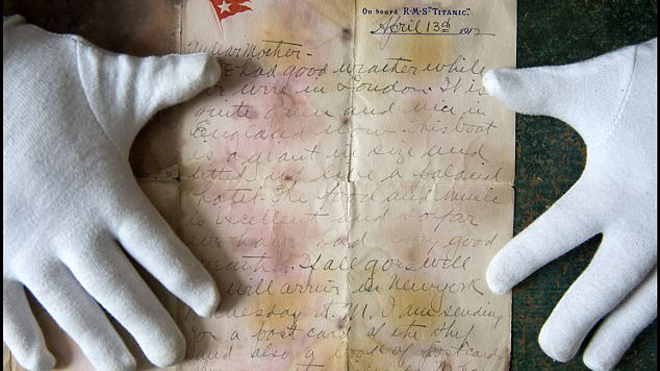 On board R·M·S "TITANIC".
April 13th 1912
My dear Mother-
had good weather while
in London. It is
quite green and nice in
England now. This boat
is a giant in size and
fitted up like a palacial
hotel. The food and music
is excellent and so far
we have had very good
weather. If all goes well
will arrive in New York
Wednesday A.M. I am sending
you a post card of the ship
and also a book of postcards